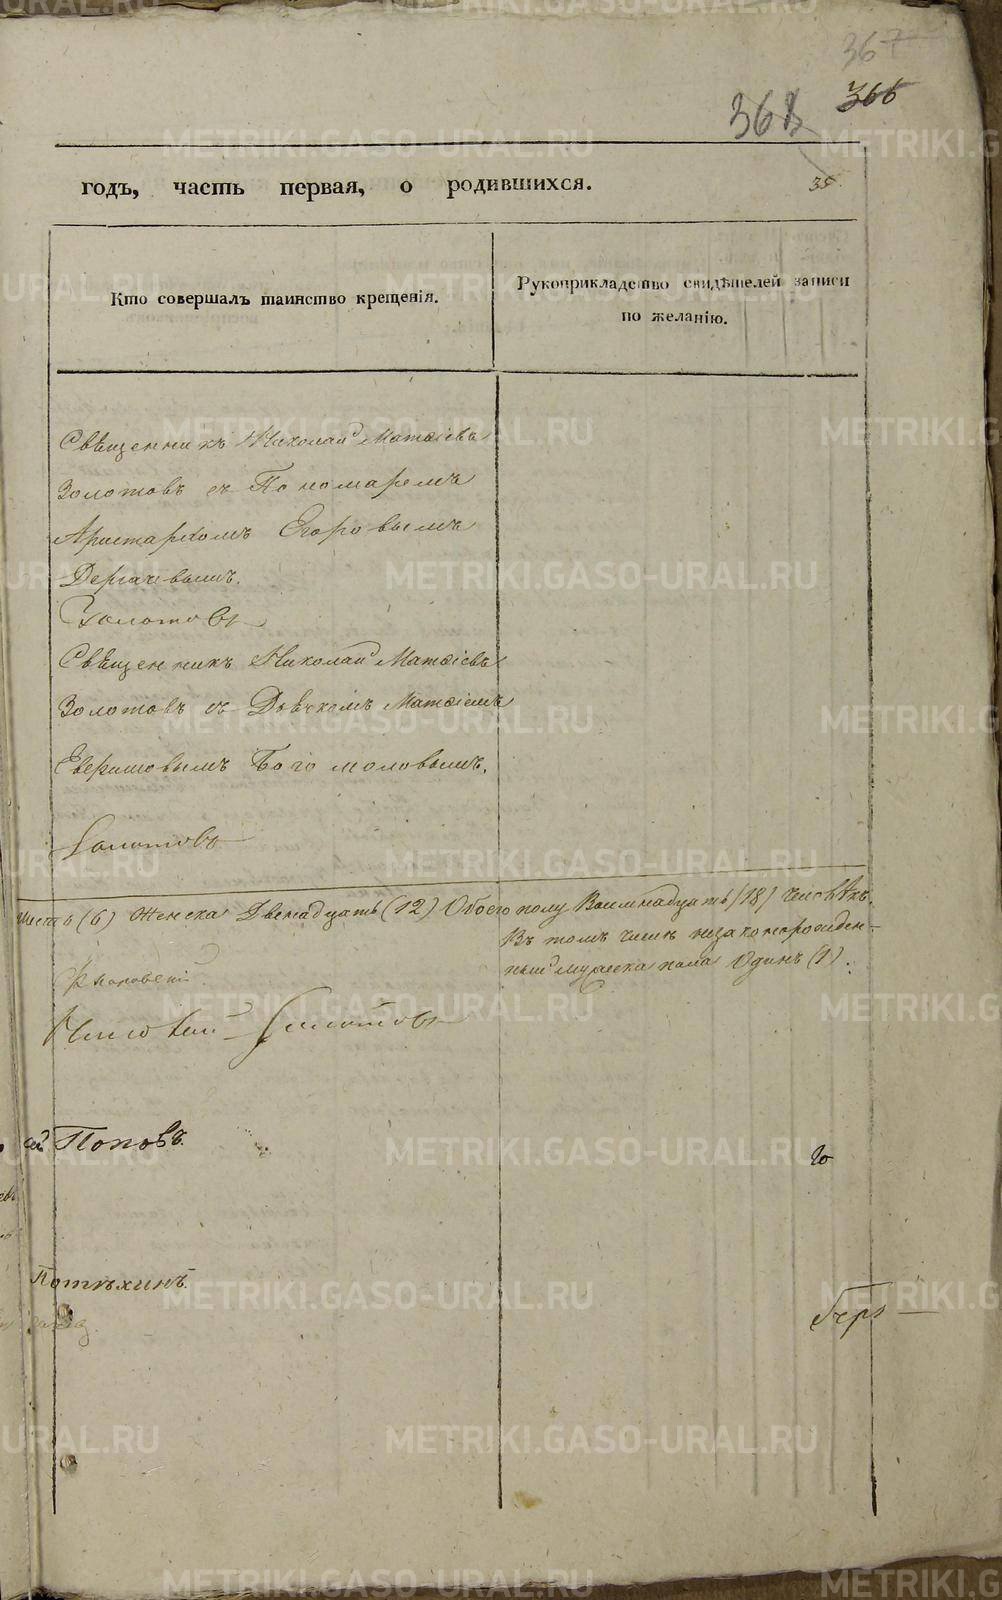 367
366
368
годъ, часть первая, о родившихся.
35.
Кто совершалъ таинство крещенія.
Рукоприкладство свидѣтелей записи
по желанію.
Священникъ Николай Матѳіевъ
Золотовъ съ Пономаремъ
Аристархомъ Егоровымъ
Дергачевымъ.
Золотовъ
Священникъ Николай Матѳіевъ
Золотовъ съ Дьячкомъ Матѳіемъ
Богомоловымъ.
Золотовъ
Шесть (6) Женска Двенадцать (12) Обоего полу Восимнадцать (18) Человѣкъ.
Въ томъ числѣ незаконорожден-
ный мужеска пола Одинъ (1).
Николай Золотовъ
Поповъ.
Потѣхинъ.
METRIKI.GASO-URAL.RU